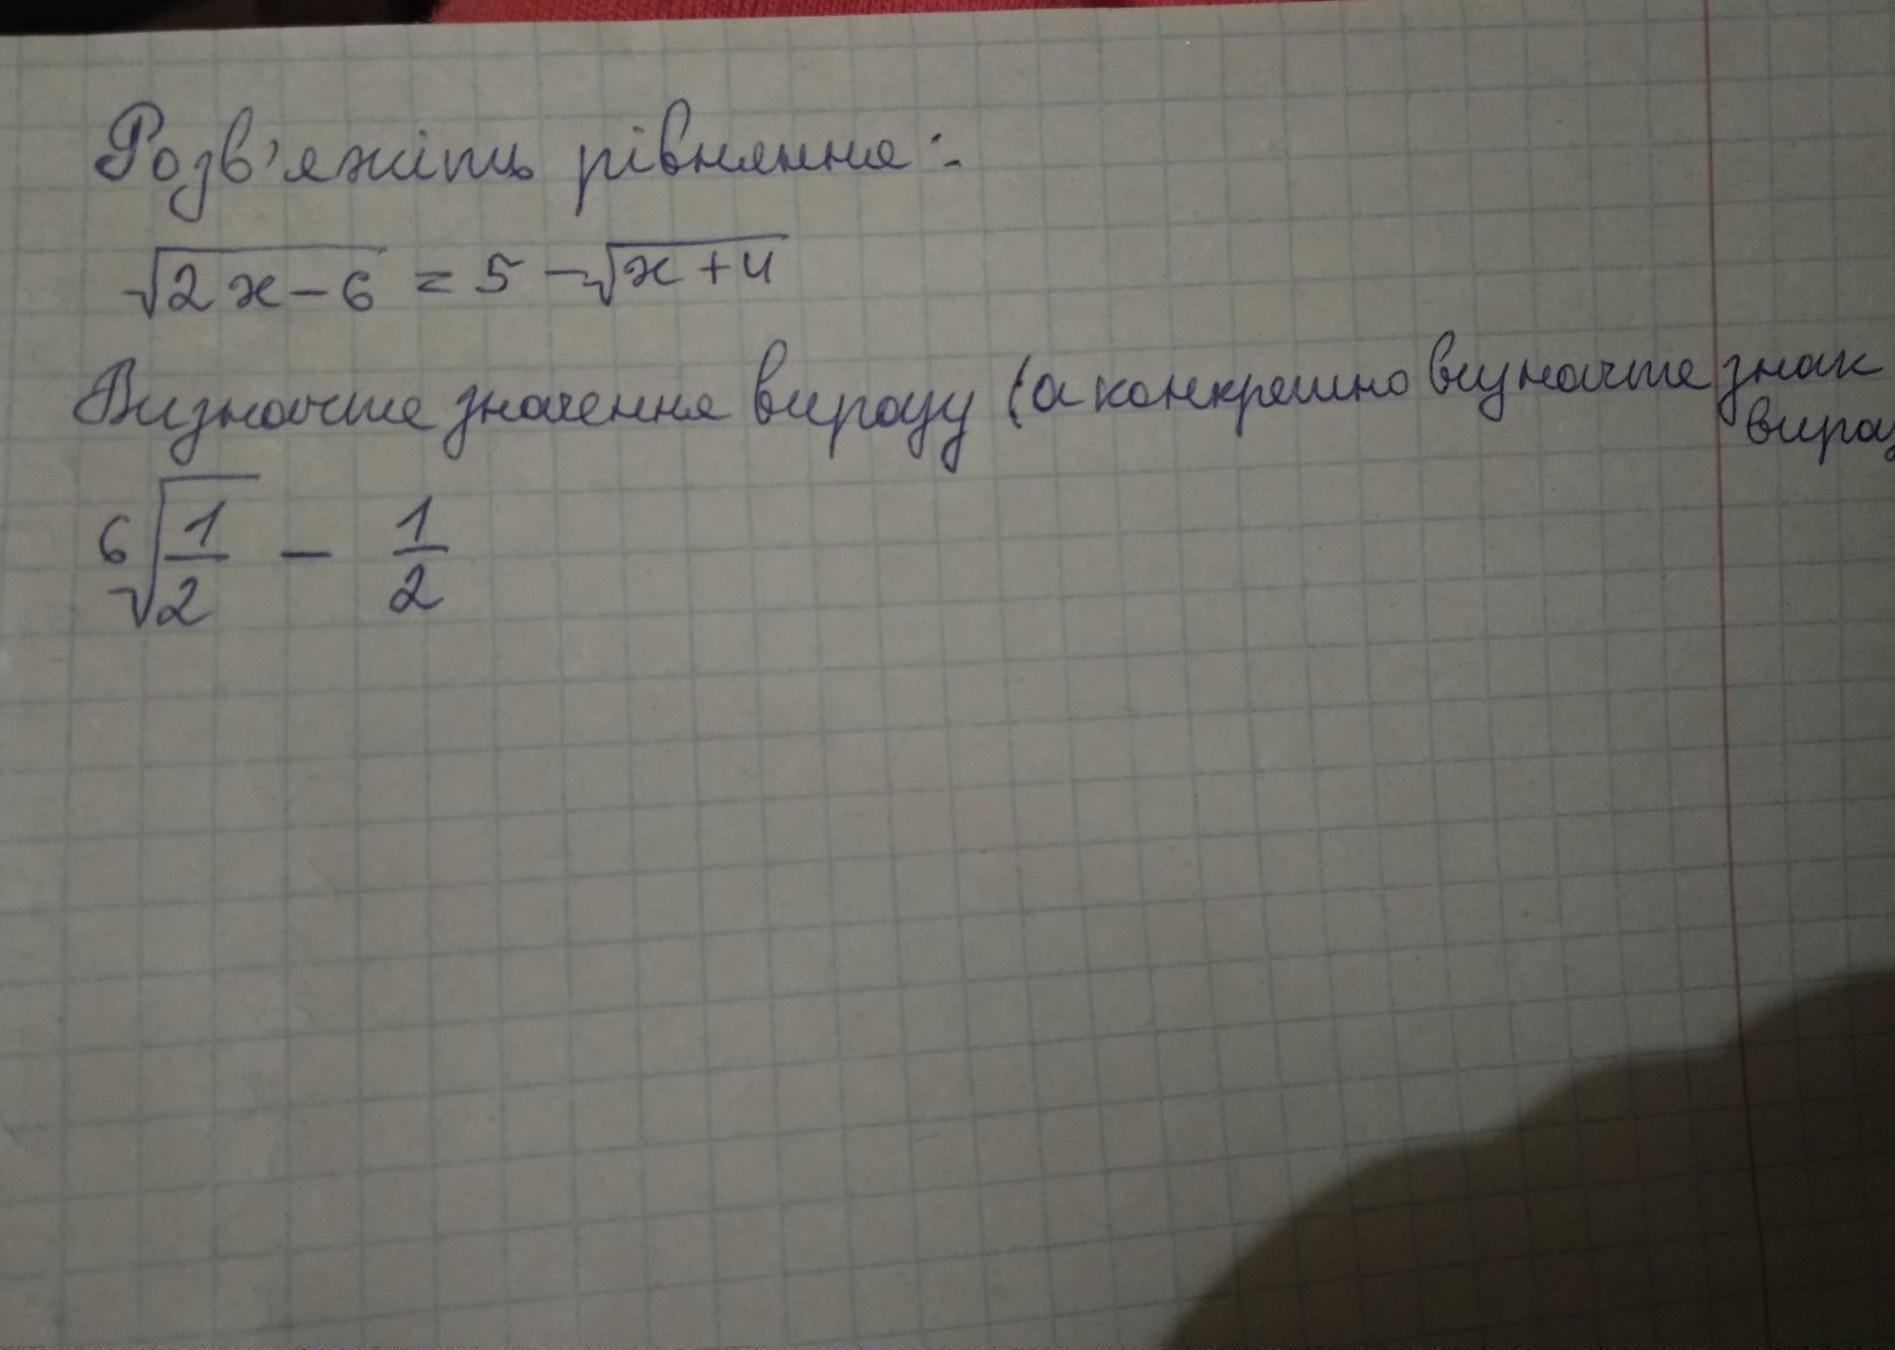 Розв'яжіть рівняння:
√2x-6 = 5 - √x+4
Визначте значення виразу (а конкретно визначте знак
вираз
⁶√1/2 - 1/2